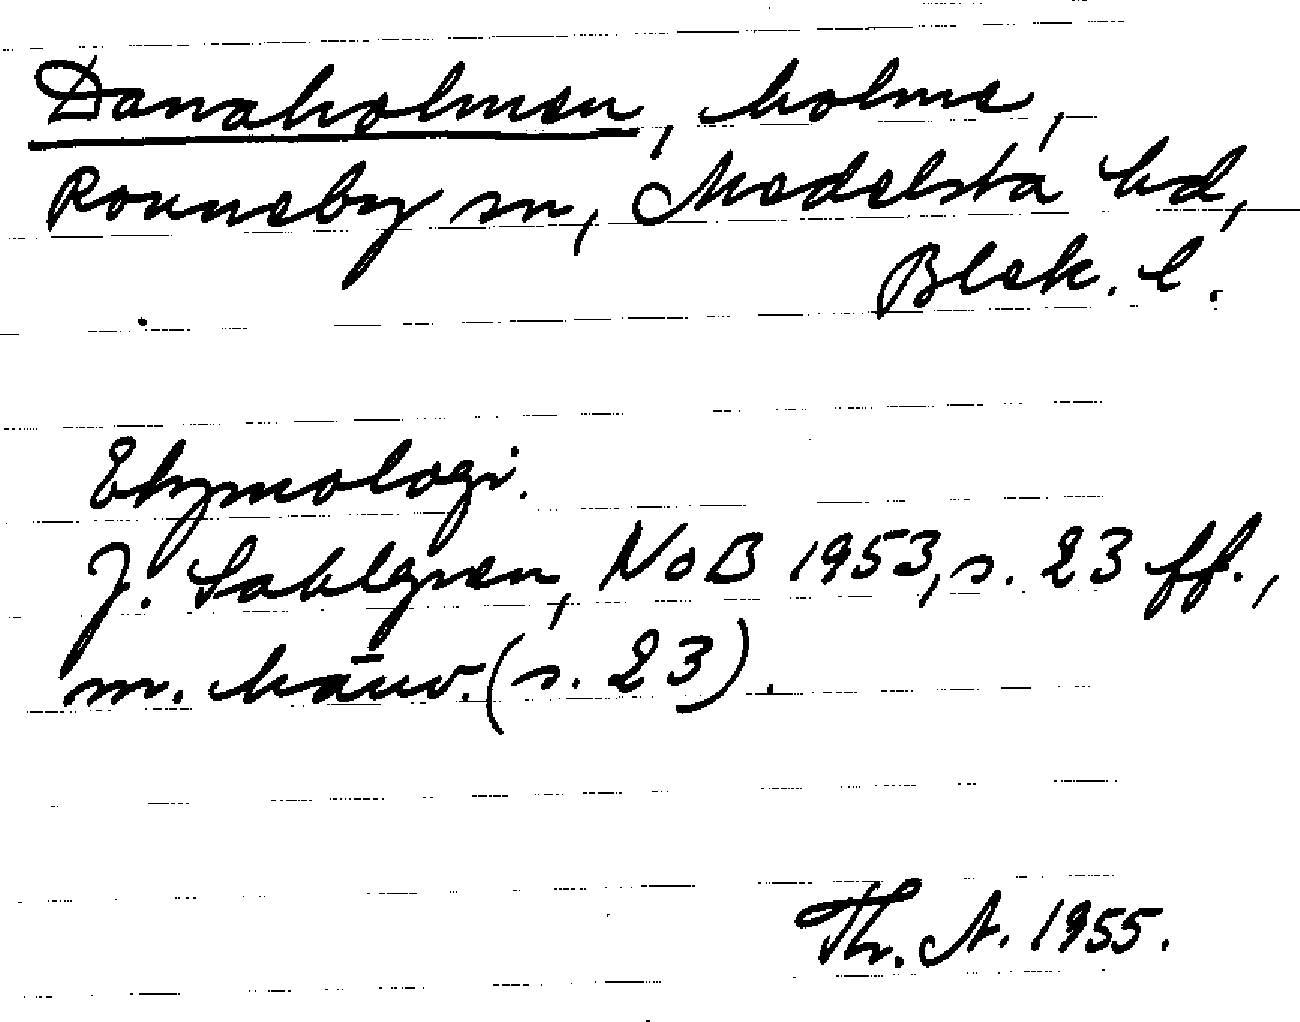 Danaholmen, holme,
Ronneby sn, Medelsta hd,
Blek. l.
Etymologi.
J. Sahlgren, NoB 1953, s. 23 ff.,
m. hänv. (s. 23).
Th. A. 1955.